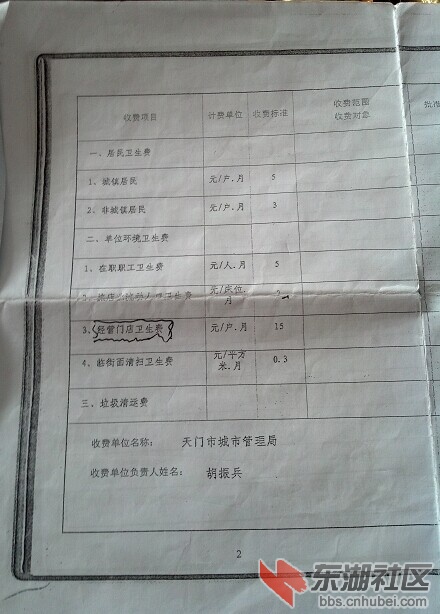 收费项目 计费单位 收费标准 收费范围 收费对象 批准
一、居民卫生费
1、城镇居民 元/户.月 5
2、非城镇居民 元/户.月 3
二、单位环境卫生费
1、在职职工卫生费 元/人.月 5
元/床位.月
3、经营门店卫生费 元/户.月 15
4、临街面清扫卫生费 元/平方米.月 0.3
三、垃圾清运费
收费单位名称: 天门市城市管理局
收费单位负责人姓名: 胡振兵
2
东湖社区
bbs.cnhubei.com